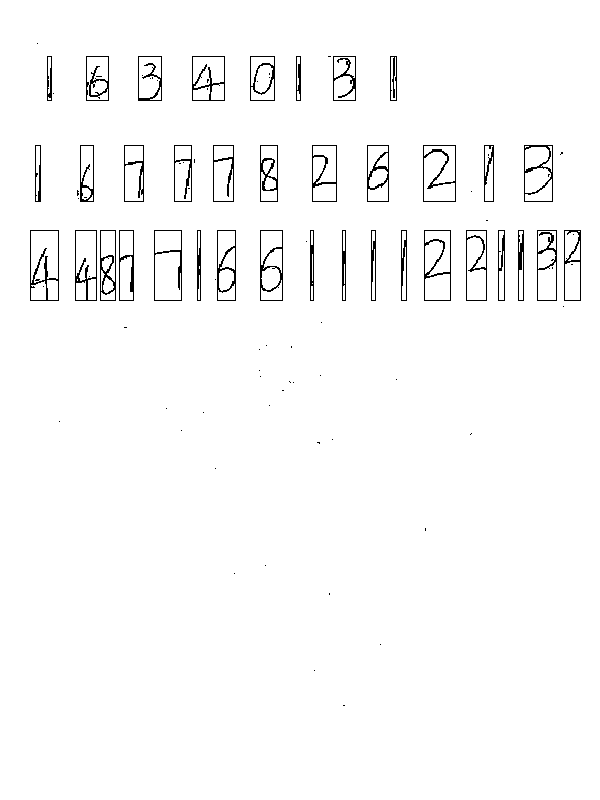 1 6 3 4 0 1 3 1
1 6 7 7 7 8 2 6 2 1 3
4 4 8 7 7 1 6 6 1 1 1 1 2 2 1 1 3 2